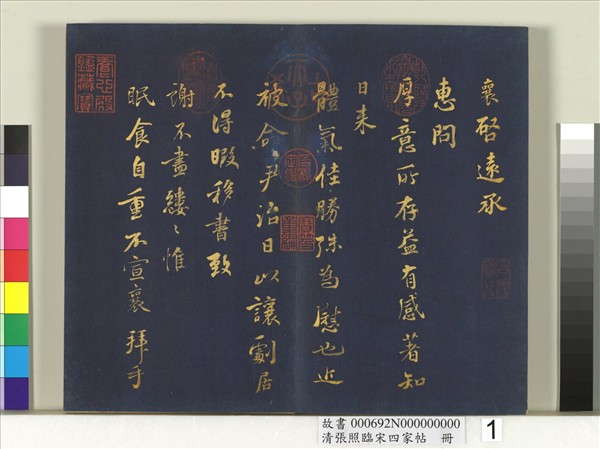 襄啓遠承
惠問
厚意所存益有感著知
日来
體氣佳勝殊為慰也近
被命尹治日以讓劇居
不得暇移書致
謝不盡縷〻惟
眠食自重不宣襄 拜手
故書 000692N000000000
清張照臨宋四家帖 冊
1